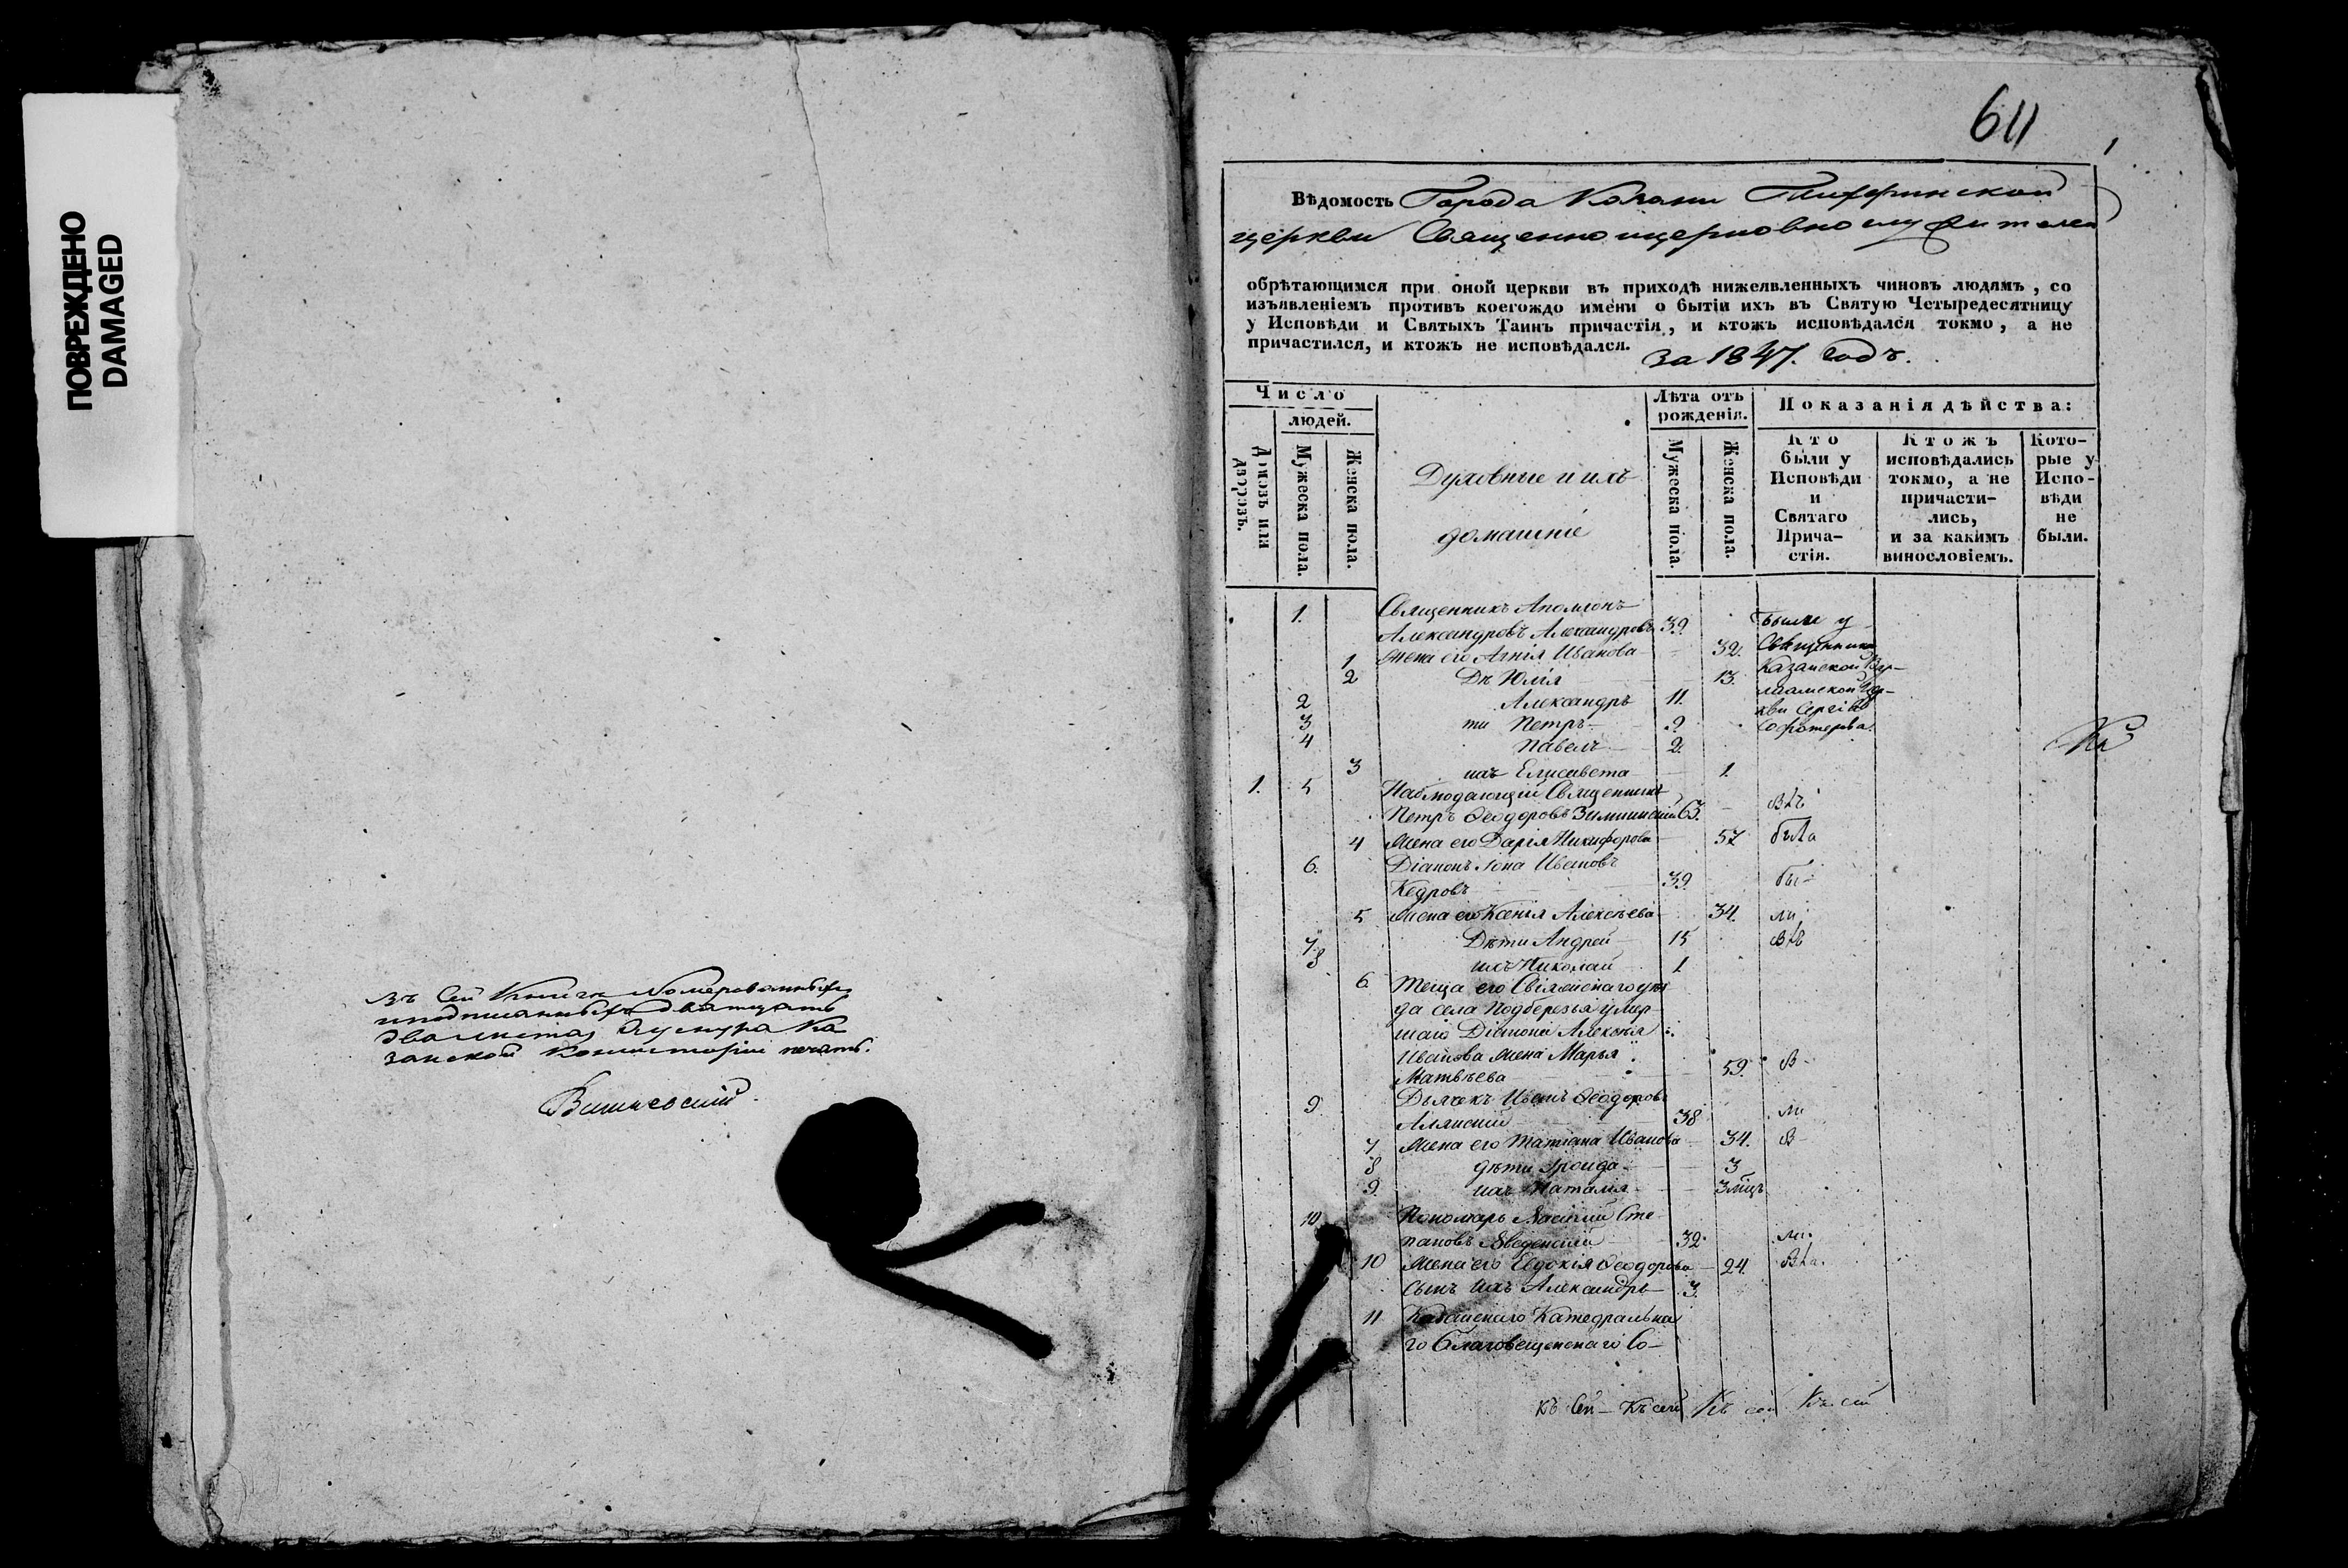 ПОВРЕЖДЕНО
DAMAGED
въ сей книги номерованныхъ
и подписанныхъ дватцать
два листа, у шнура Ка-
занской Консисторіи печать.
Вишневский
611
Вѣдомость Города Казани Тихфинской
церкви Священноицерковнослужителей
обрѣтающимся при оной церкви въ приходѣ нижеявленныхъ чиновъ людямъ, со
изъявленіемъ противъ коегождо имени о бытіи ихъ въ Святую Четыредесятницу
у Исповѣди и Святыхъ Таинъ причастія, и ктожъ исповѣдался токмо, а не
причастился, и ктожъ не исповѣдался. за 1847. годъ.
Число
людей.
Домовъ или дворовъ.
Мужеска пола.
Женска пола.
Духовные и ихъ
домашніе
Лѣта отъ
рожденія.
Мужеска пола.
Женска пола.
Показанія дѣйства:
Кто
были у
Исповѣди
и
Святаго
Прича-
стія.
Ктожъ
исповѣдались
токмо, а не
причасти-
лись,
и за какимъ
винословіемъ.
Кото-
рые у
Испо-
вѣди
не
были.
1. Священникъ Аполлонъ
Александровъ Александровъ 39. Были у
1 Жена его Агнія Иванова 32. Священника
2 Дѣ Юлія 13. Казанской Вар-
2 Александръ 11. лаамской Цер-
3 ти Петръ 9 кви Сергія
4 Павелъ 2.
3 ихъ Елисавета 1.
1. 5 Наблюдающій Священникъ
Петръ Ѳеодоровъ 63.
4 Жена его Дарія Никифорова 57
6. Діаконъ Іона Ивановъ
Кедровъ 39. бы-
5 Жена его Ксенія Алексѣева 34. ли
7. Дѣти Андрей 15
8 ихъ Николай 1.
6 Теща его Свіяжскаго уѣз
да села Подберезья умер-
шаго Діакона Алексѣя
Иванова жена Марья
Матвѣева 59.
9 Дьячекъ Иванъ Ѳеодоровъ
38
7 Жена его Татіана Иванова 34.
8 дѣти Ираида 3
9. ихъ Наталія 3 мѣцъ
10 Пономарь Василій Сте-
пановъ Введенскій 32.
10 Жена его Евдокія Ѳеодорова 24.
Сынъ ихъ Александръ 3.
11 Казанскаго Катедральна
го Благовещенскаго Со-
Къ сей Къ сей Къ сей Къ сей